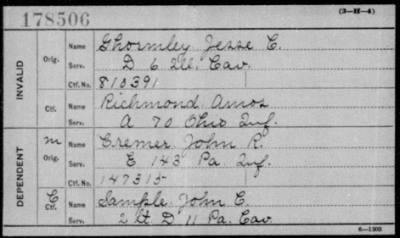 178506
(3-H-4)
INVALID
Orig. Name Ghormley Jesse C.
Serv. D 6 Ill. Cav.
Ctf. No. 810391
Ctf. Name Richmond Amos
Serv. A 70 Ohio Inf.
DEPENDENT
m Orig. Name Cremer John R.
Serv. E 143 Pa. Inf.
Ctf. No. 147315
C Ctf. Name Sample John C.
Serv. 2 Lt D 11 Pa. Cav
6-1303